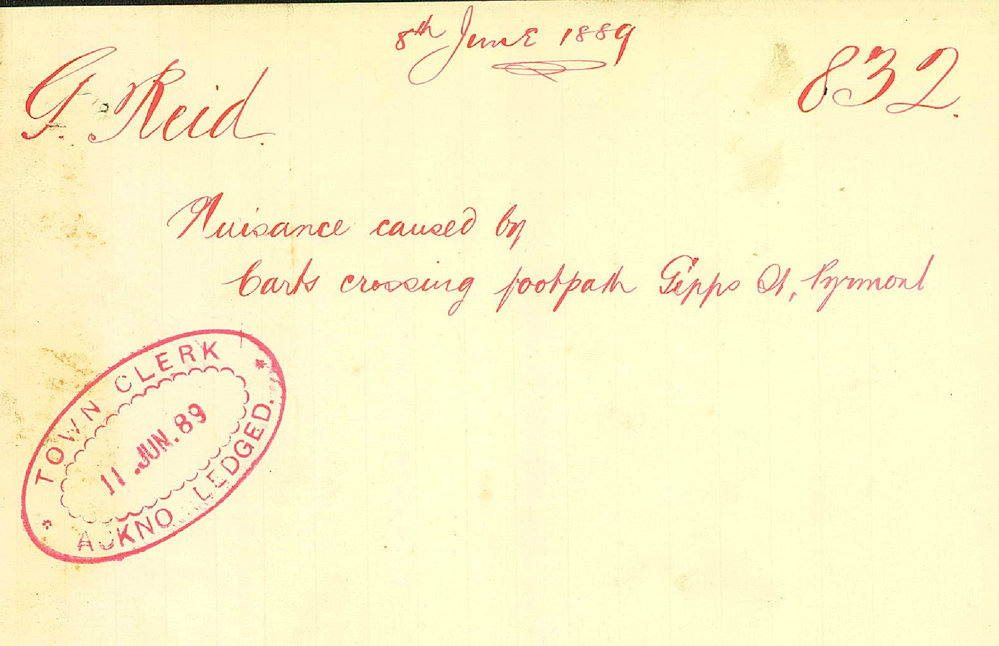 8th June 1889
G. Reid.
832.
Nuisance caused by
Carts crossing footpath Gipps St, Pyrmont
TOWN CLERK
11 JUN. 89
ACKNO LEDGED.